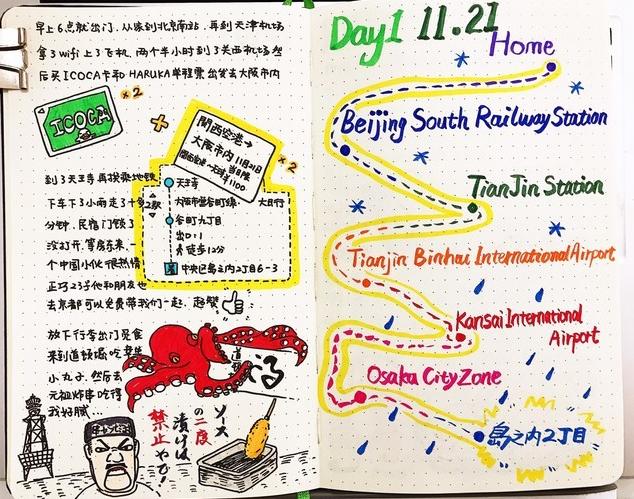 早上6点就出门.从家到北京南站.再到天津机场
拿了wifi上了飞机.两个半小时到了关西机场.然
后买ICOCA卡和HARUKA单程票出发去大阪市内
ICOCA
×2
+
関西空港→
大阪市内 11月21日
当日限
¥1100
×2
到了天王寺再换乘地铁
下车下了小雨走了十多
分钟.民宿门锁了
没打开.等房东来.一
个中国小伙很热情
正巧23号他和朋友也
去京都可以免费带我们一起.超赞
天王寺
大阪市営谷町線
2駅
大日行
谷町九丁目
出口:1
徒歩12分
中央区島之内2丁目6-3
放下行李出门觅食
来到道顿堀吃章鱼
小丸子.然后去
元祖炸串吃得
我好腻...
ソース
の二度
漬けは
禁止やで!
Day1 11.21
Home
Beijing South Railway Station
TianJin Station
Tianjin Binhai International Airport
Kansai International
Airport
Osaka City Zone
島之内2丁目